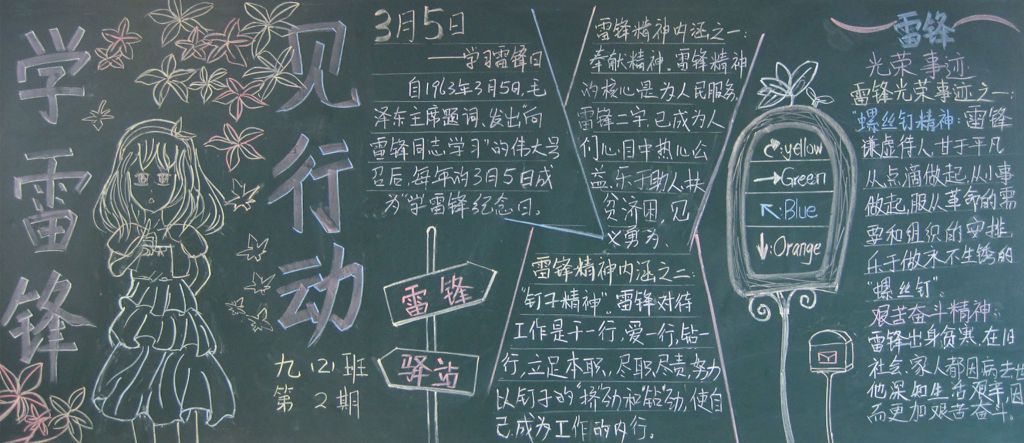 学雷锋
见行动
九(2)班
第2期
3月5日
——学习雷锋日
自1963年3月5日,毛
泽东主席题词、发出"向
雷锋同志学习"的伟大号
召后,每年的3月5日成
为"学雷锋纪念日。
雷锋
驿站
雷锋精神内涵之一:
奉献精神.雷锋精神
的核心是为人民服务,
雷锋二字已成为人
们心目中热心公
益、乐于助人、扶
贫济困、见
义勇为、
雷锋精神内涵之二:
"钉子精神"。雷锋对待
工作是干一行,爱一行,钻一
行,立足本职、尽职尽责,努力
以钉子的"挤"劲和"钻"劲,使自
己成为工作的内行。
:yellow
Green
:Blue
:Orange
雷锋
光荣事迹
雷锋光荣事迹之一:
"螺丝钉精神:雷锋
谦虚待人,甘于平凡
从点滴做起,从小事
做起,服从革命的需
要和组织的安排,
乐于做永不生锈的
"螺丝钉"。
艰苦奋斗精神:
雷锋出身贫寒,在旧
社会,家人都因病去世
他深知生活艰辛,因
而更加艰苦奋斗。